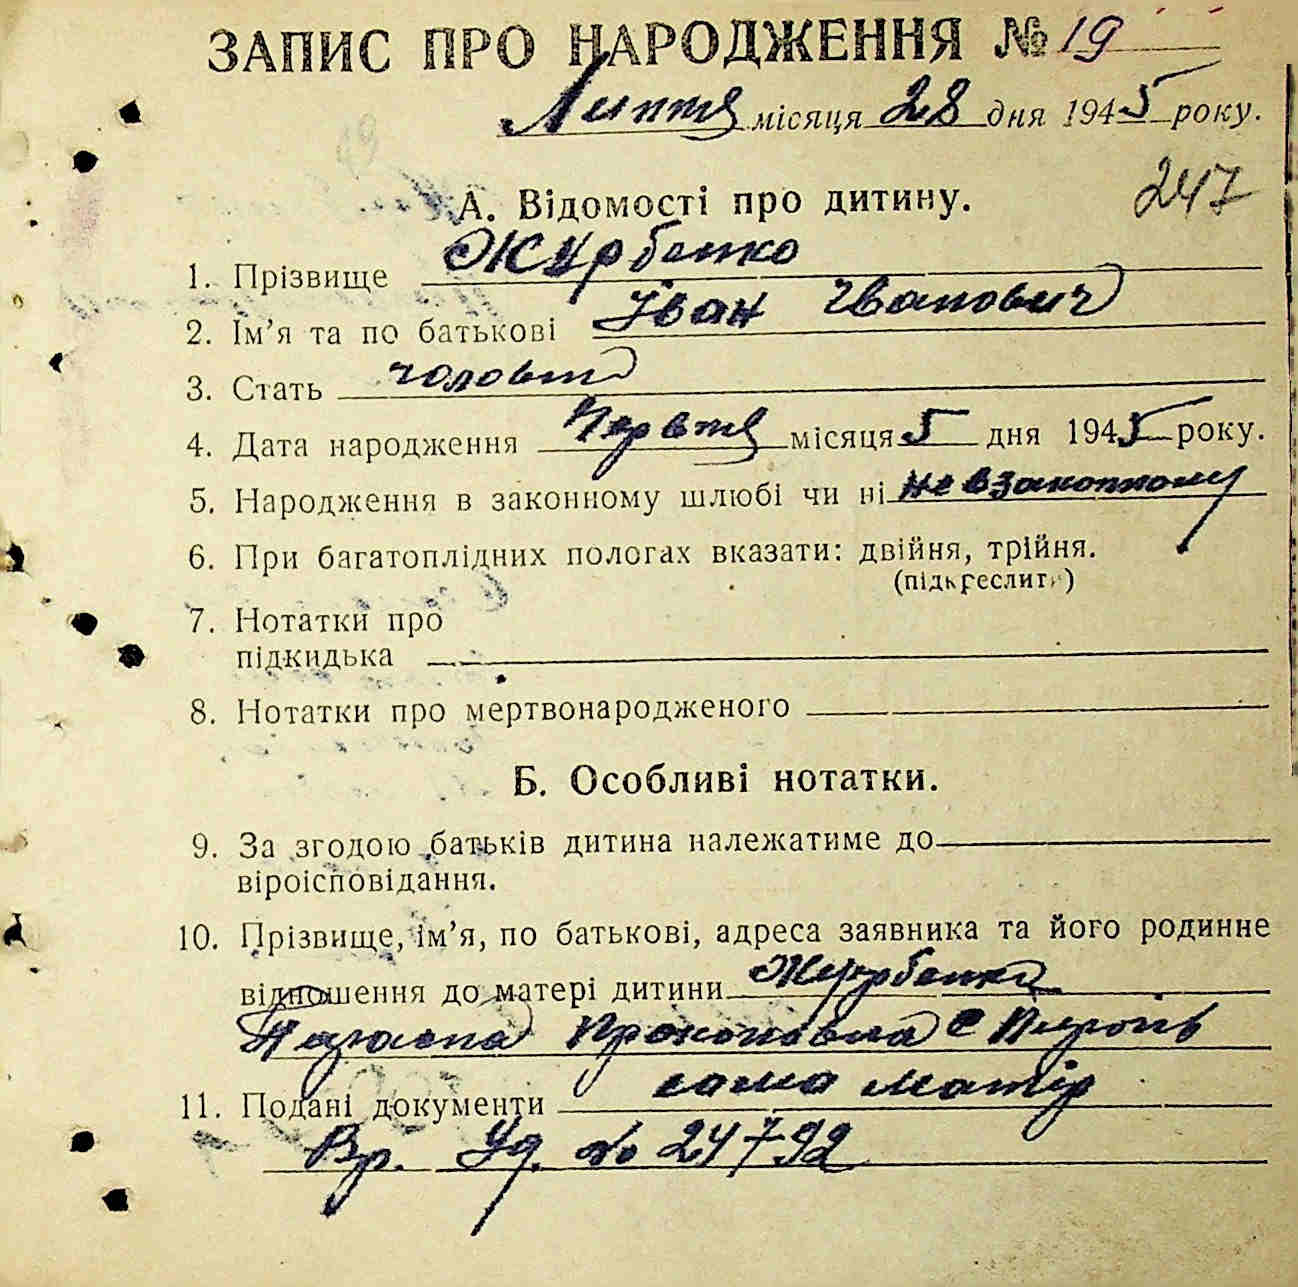 ЗАПИС ПРО НАРОДЖЕННЯ № 19
Липня місяця 28 дня 1945 року.
247
А. Відомості про дитину.
1. Прізвище Журбенко
2. Ім'я та по батькові Іван Іванович
3. Стать чоловіч
4. Дата народження Червня місяця 5 дня 1945 року.
5. Народження в законному шлюбі чи ні не в законному
6. При багатоплідних пологах вказати: двійня, трійня.
(підкреслить)
7. Нотатки про
підкидька
8. Нотатки про мертвонародженого
Б. Особливі нотатки.
9. За згодою батьків дитина належатиме до
віроісповідання.
10. Прізвище, ім'я, по батькові, адреса заявника та його родинне
відношення до матері дитини Журбенко
Прокоповна С
сама матір
11. Подані документи
Вр. Уд. № 24792